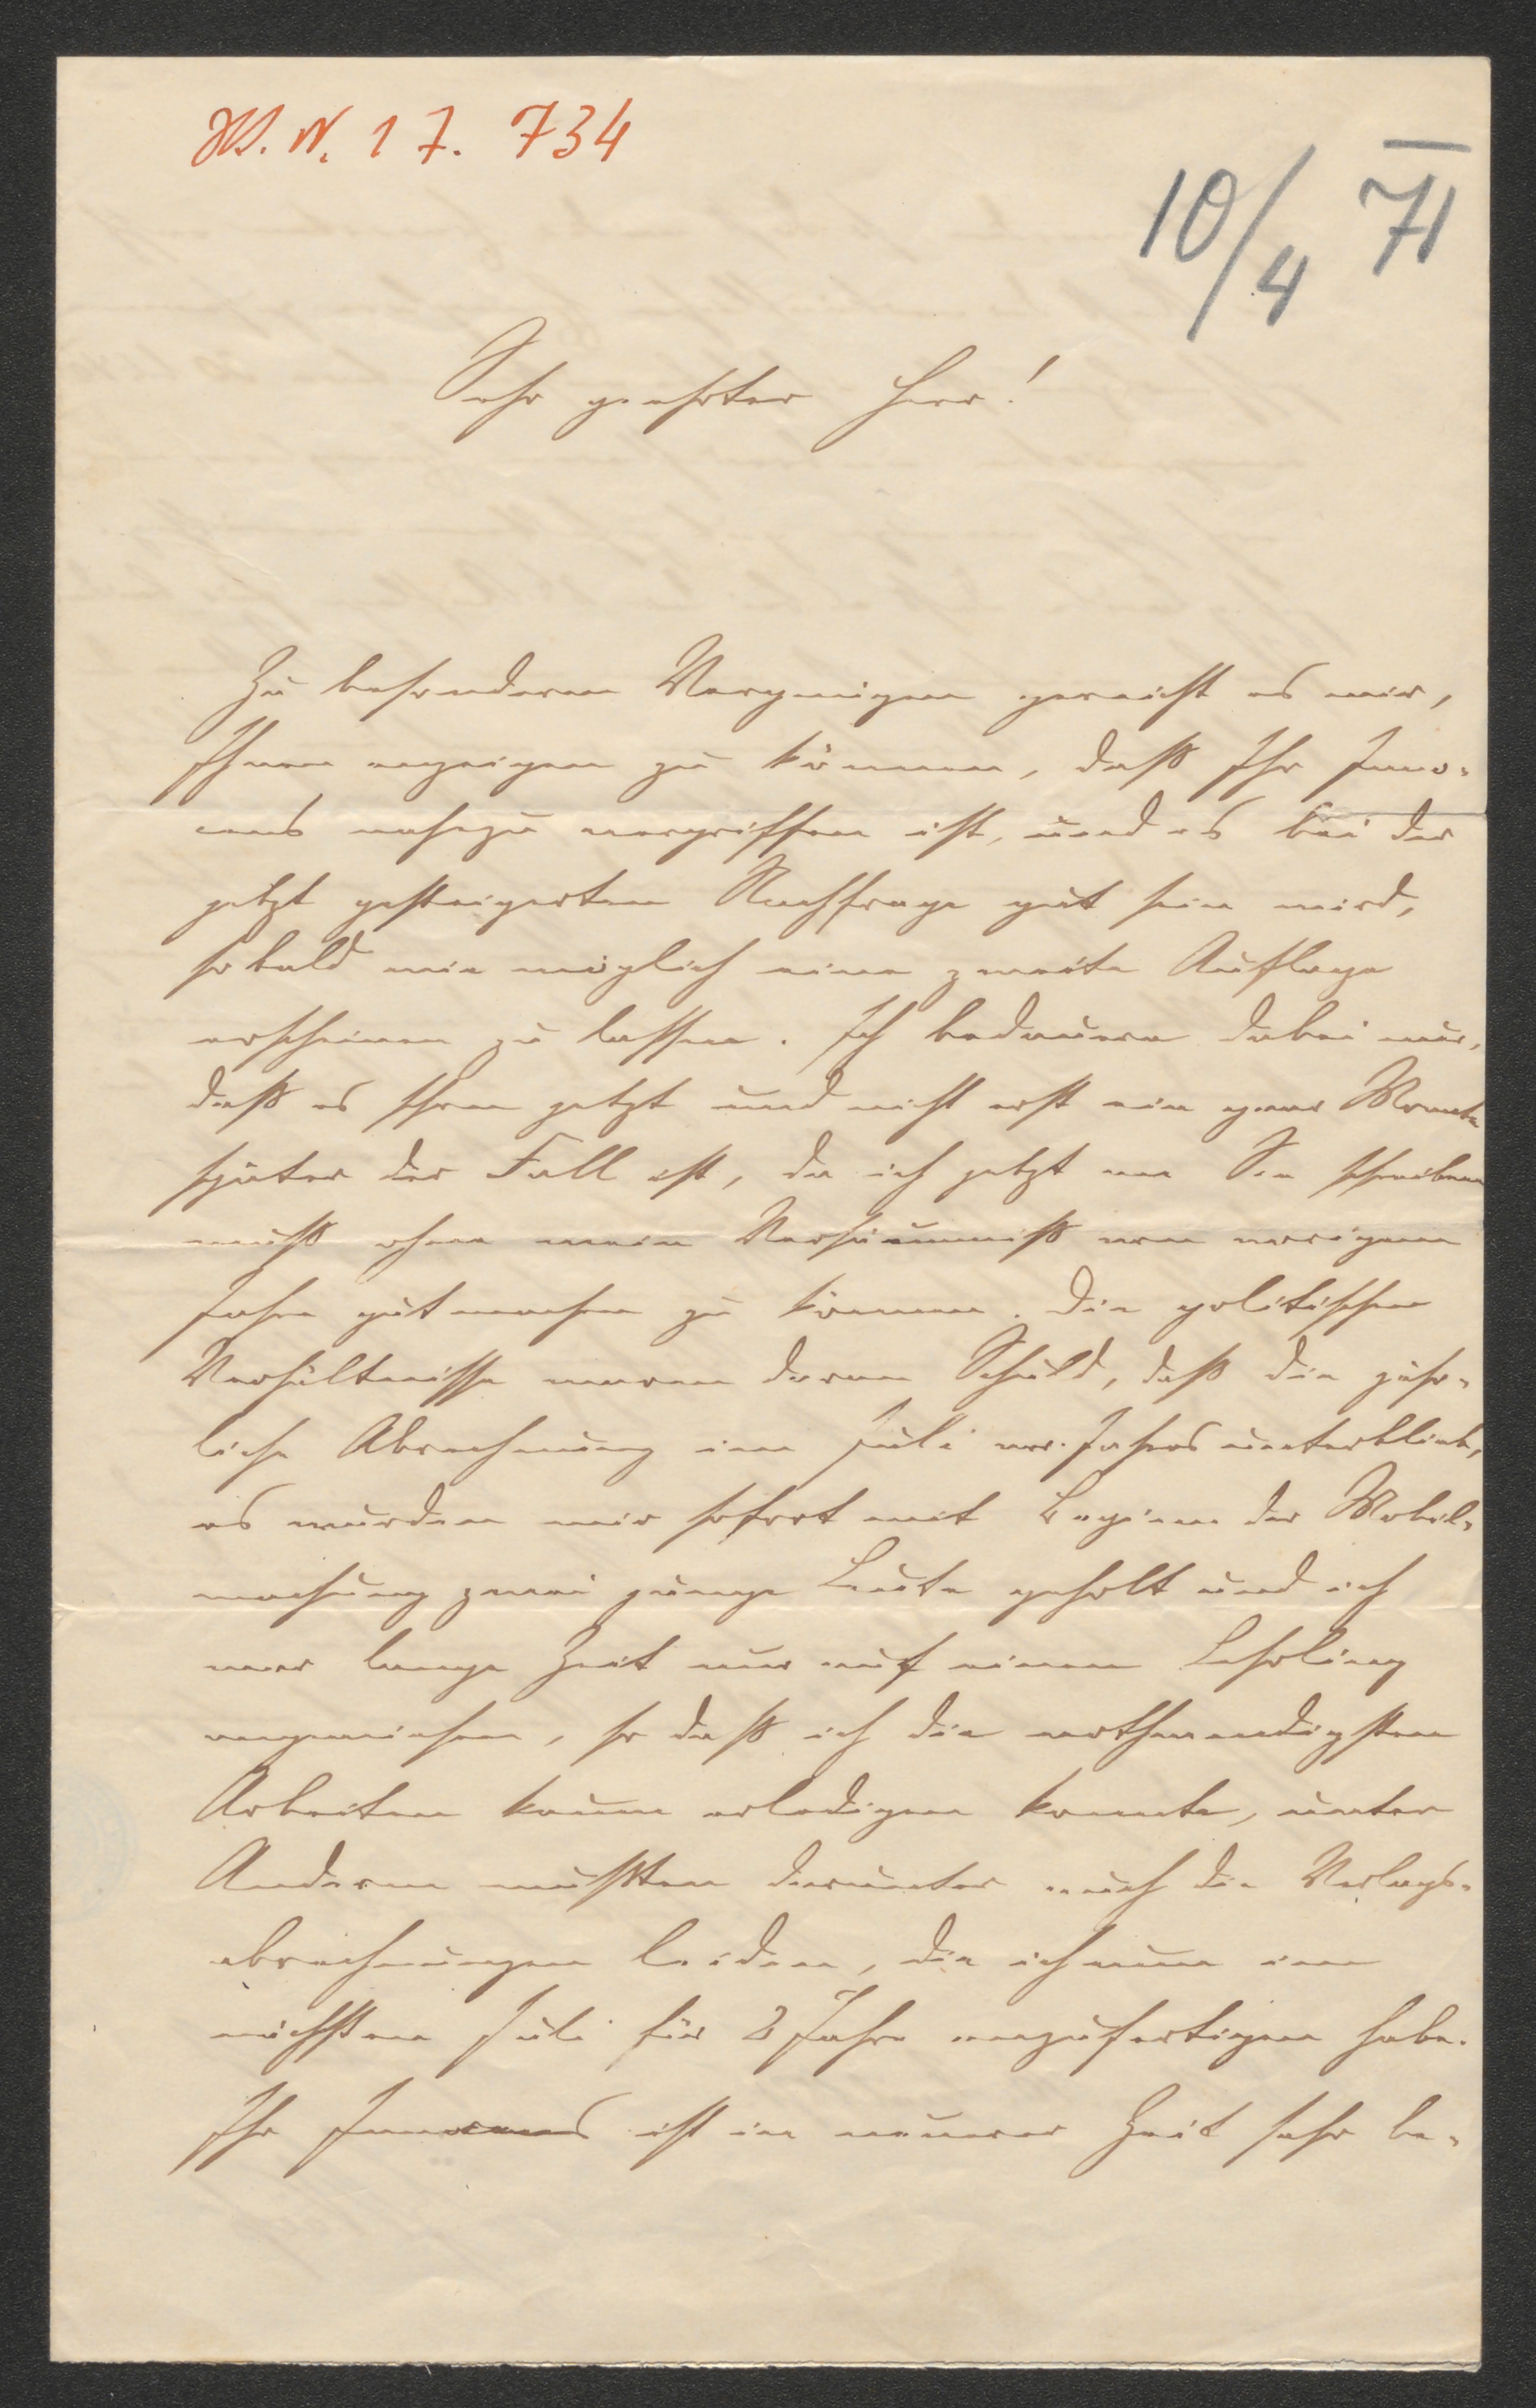 W. N. 17. 734
10/4 71
Sehr geehrter Herr!
Zu besonderem Vergnügen gereicht es mir,
Ihnen anzeigen zu können, daß Ihr Inno-
cens nahezu vergriffen ist, und es bei der
jetzt gesteigerten Nachfrage gut sein wird,
so bald wie möglich eine zweite Auflage
erscheinen zu lassen. Ich bedauere dabei nur,
daß es schon jetzt und nicht erst ein paar Monate
später der Fall ist, da ich jetzt an Sie schreiben
muß ohne mein Versäumniß vom vorigen
Jahre gut machen zu können. Die politischen
Verhältnisse waren daran Schuld, daß die jähr-
liche Abrechnung im Juli vor. Jahres unterblieb,
es wurden mir sofort mit Beginn der Mobil-
machung zwei junge Leute geholt und ich
war lange Zeit nur auf einen Lehrling
angewiesen, so daß ich die nothwendigsten
Arbeiten kaum erledigen konnte, unter
Anderem mußten darunter auch die Verlags-
abrechnungen leiden, die ich nun im
nächsten Juli für 2 Jahre anzufertigen habe.
Ihr Innocens ist in neuerer Zeit sehr be-